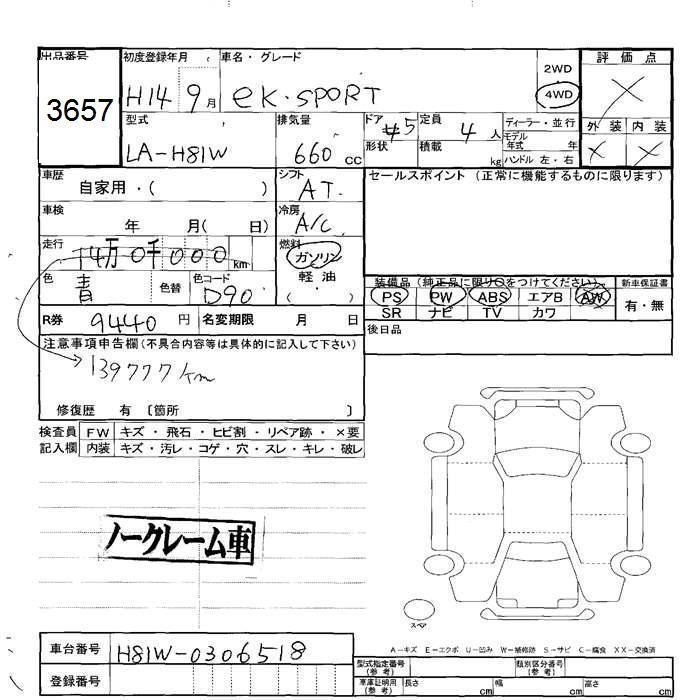 出品番号 初度登録年月 車名・グレード 2WD 評価点
3657 H14 9月 eK・SPORT 4WD ×
型式 排気量 ドア #5 定員 4人 ディーラー・並行 外装 内装
LA-H81W 660cc 形状 積載 kg モデル年式 年 × ×
ハンドル 左・右
車歴 自家用・( ) シフト AT セールスポイント (正常に機能するものに限ります)
車検 年 月( 日) 冷房 A/C
走行 14万0千000km 燃料 ガソリン
色 青 色替 色コード D90 軽・油 ( ・ )
装備品(純正品に限り○をつけてください) 新車保証書
PS PW ABS エアB AW 有・無
SR ナビ TV カワ
R券 9440円 名変期限 月 日 後日品
注意事項申告欄(不具合内容等は具体的に記入して下さい)
139777km
修復歴 有 〔箇所 〕
検査員 FW キズ・飛石・ヒビ割・リペア跡・×要
記入欄 内装 キズ・汚レ・コゲ・穴・スレ・キレ・破レ
ノークレーム車
スペア
A-キズ E-エクボ U-凹み W-補修跡 S-サビ C-腐食 XX-交換済
車台番号 H81W-0306518
登録番号
型式指定番号(参考) 類別区分番号(参考)
車庫証明用(参考) 長さ cm 幅 cm 高さ cm